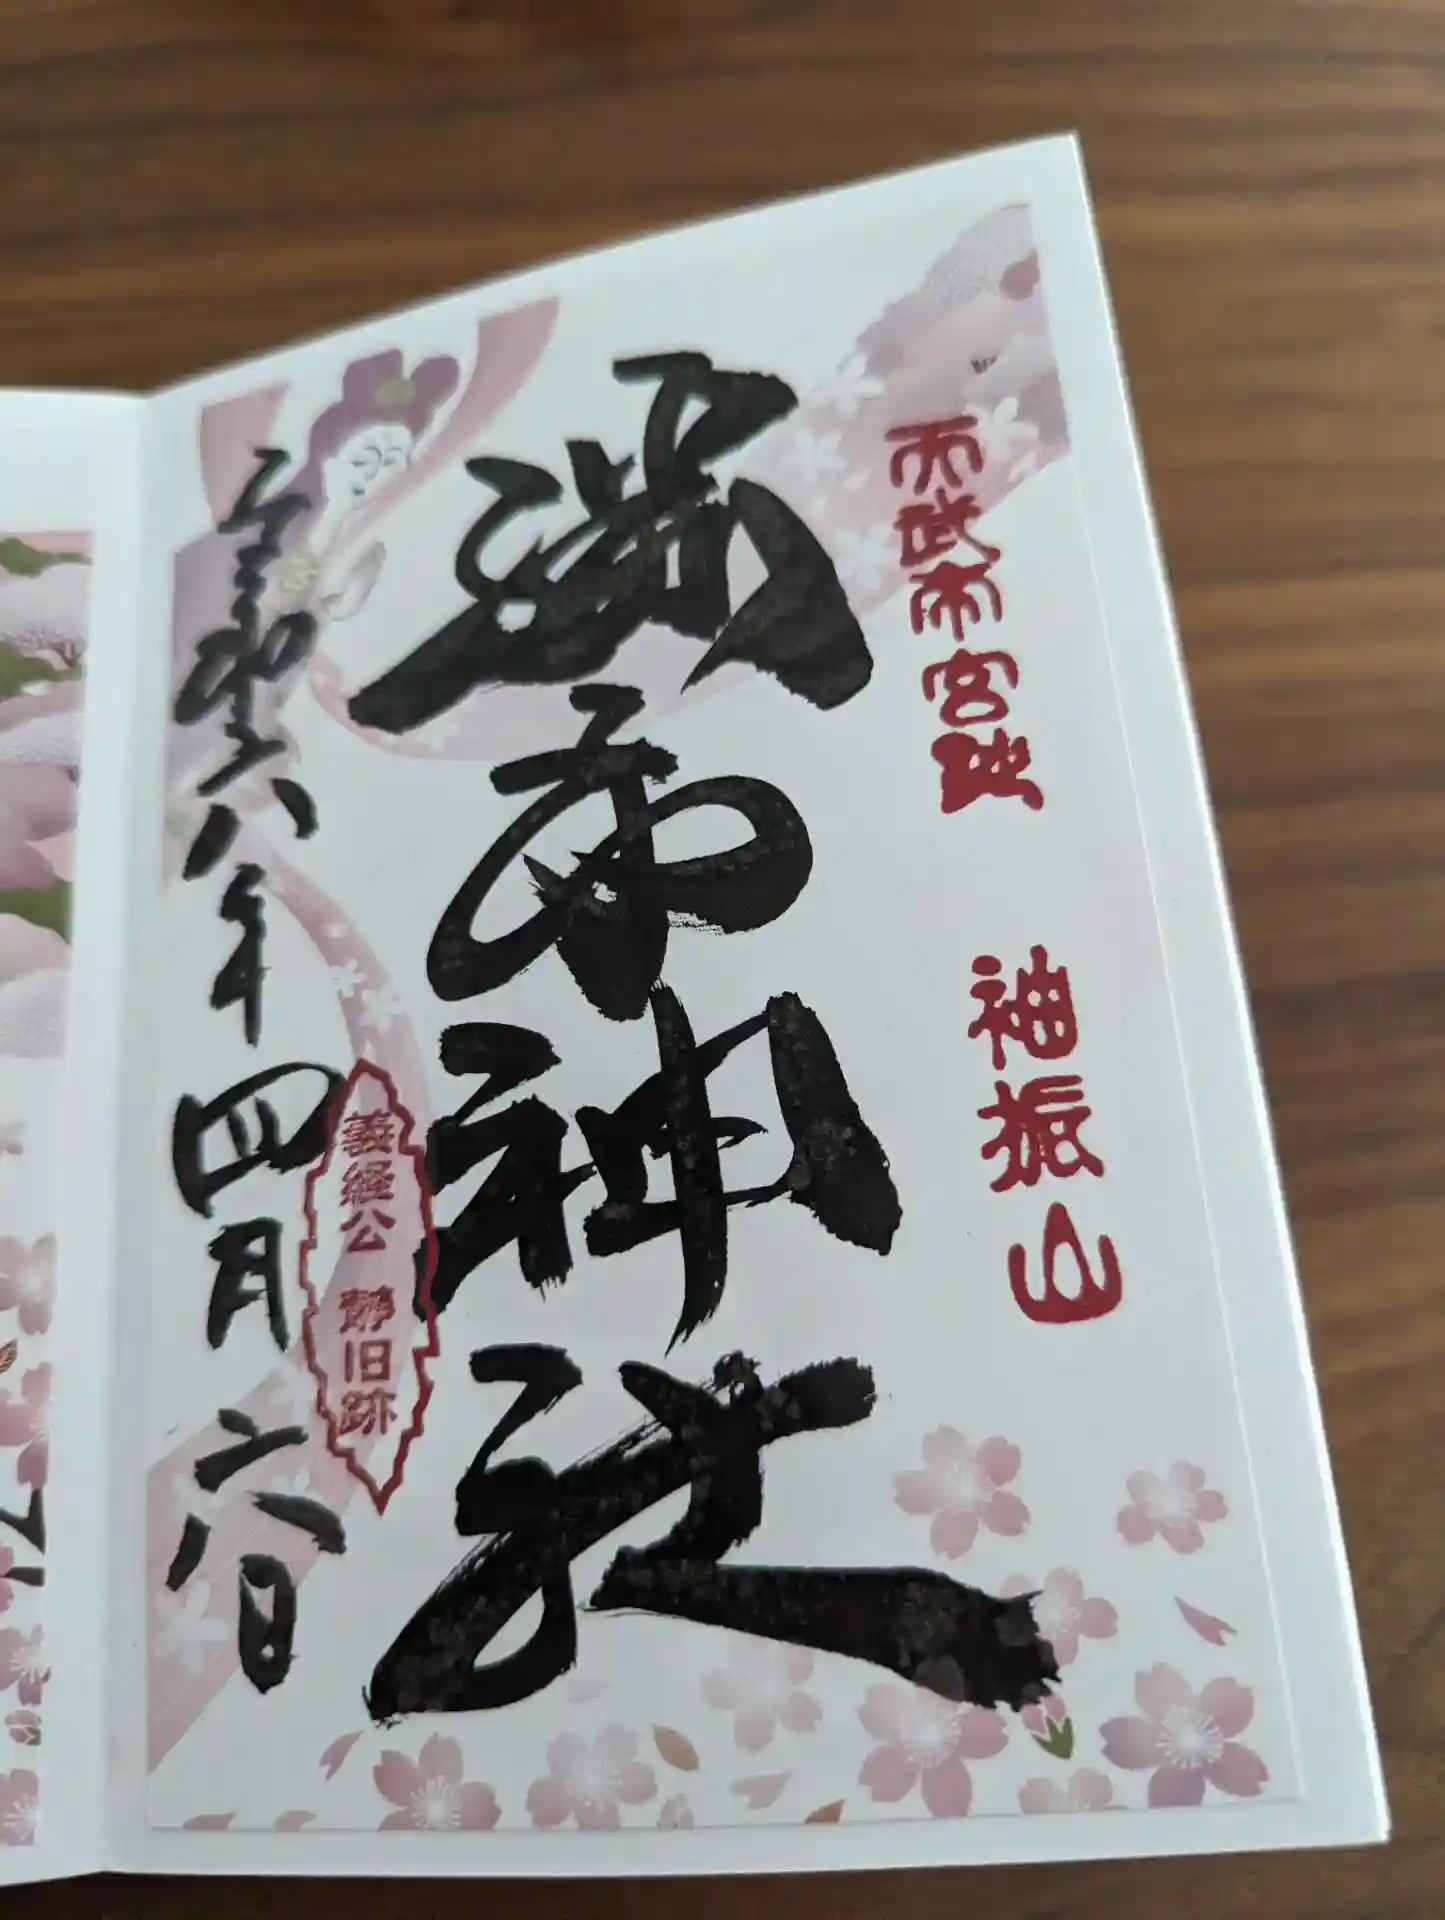 天武帝宮 袖振山
勝手神社
義経公 静旧跡
令和六年四月六日